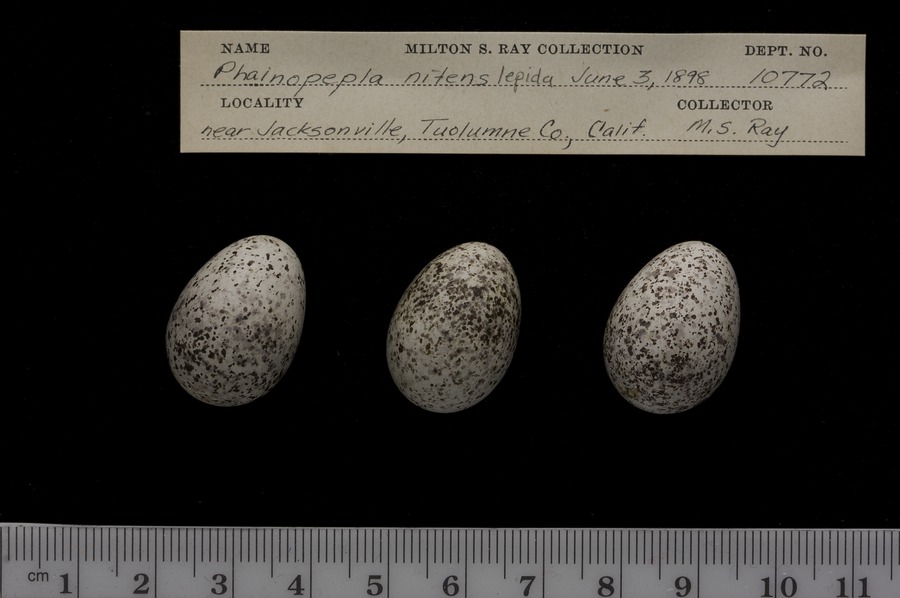 NAME MILTON S. RAY COLLECTION DEPT. NO.
Phainopepla nitens lepida June 3, 1898 10772
LOCALITY COLLECTOR
near Jacksonville, Tuolumne Co., Calif. M.S. Ray
cm 1 2 3 4 5 6 7 8 9 10 11